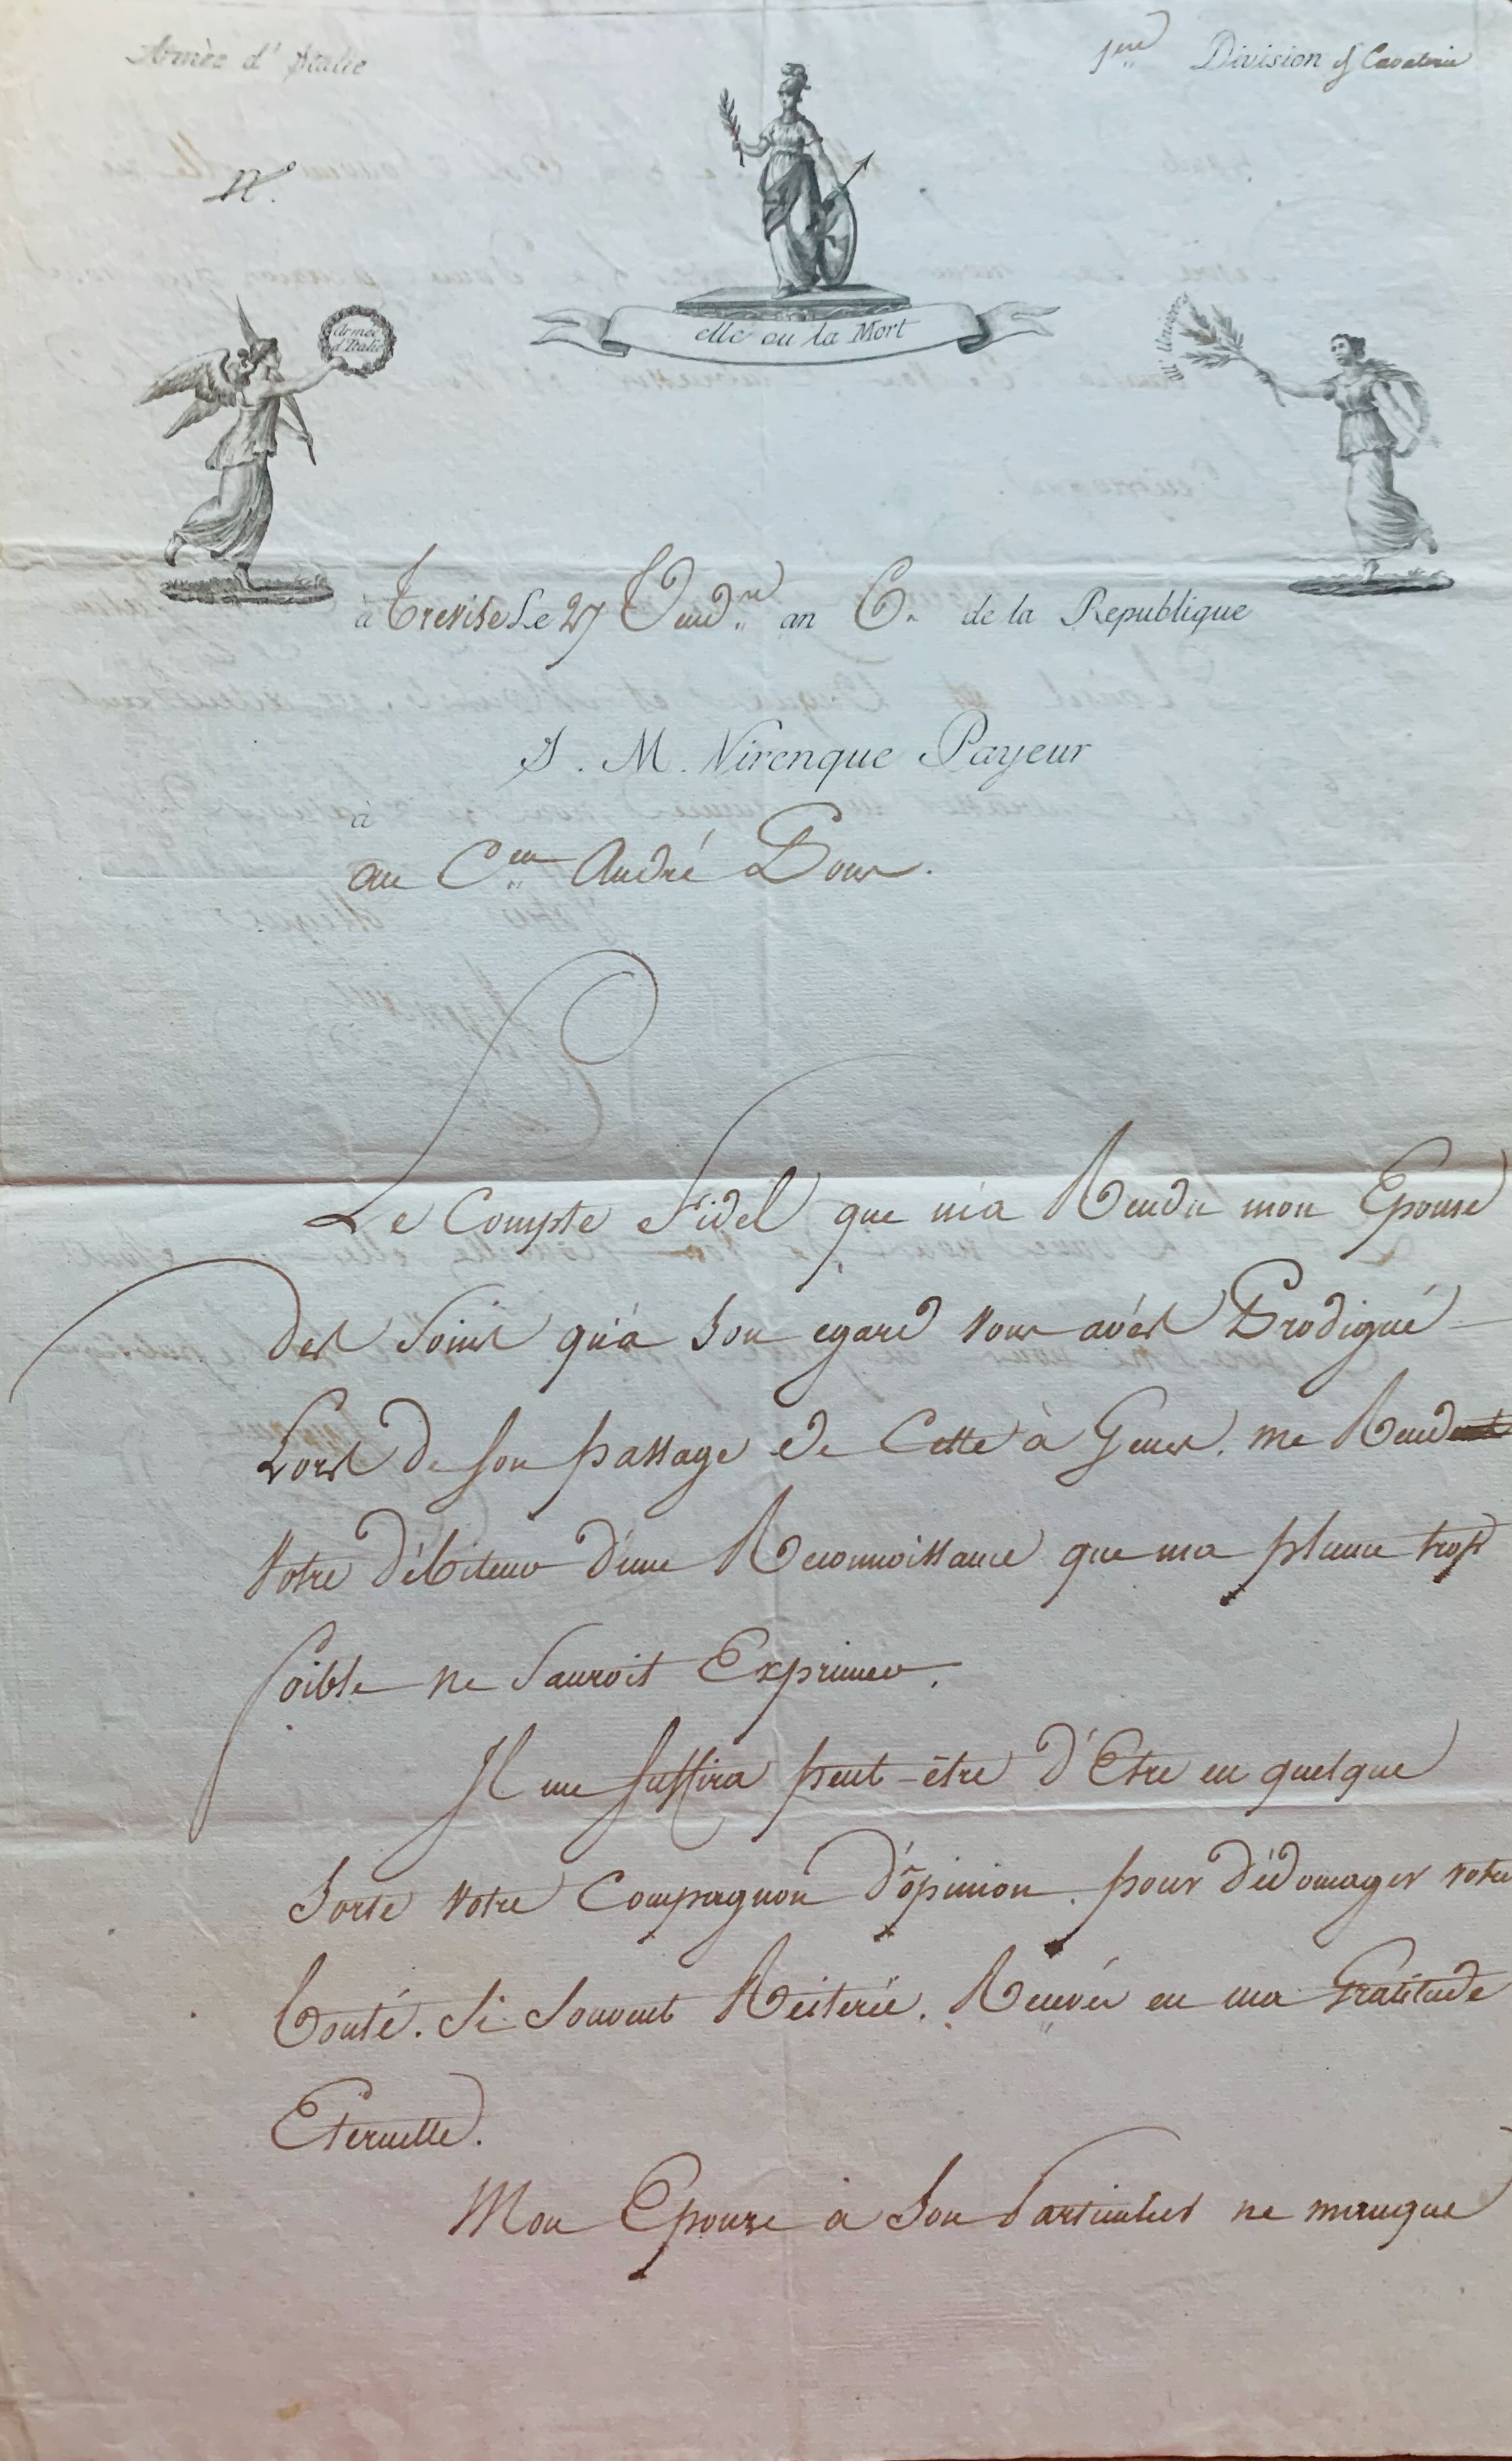 Armée d'Italie
1ere Division de Cavalerie
N°.
elle ou la Mort
Armée d'Italie
à l'Univers
à Trevise Le 27 Vend.re an 6. de la Republique
J. M. Nirenque Payeur
à
au C.en André Pour.
Le Compte Fidel que m'a Rendu mon Epouse
Des Soins qu'a Son egard vous avés Prodigué
Lors de son passage de Cette à Genes. me Rend
Votre débiteur d'une Reconnoissance que ma plume trop
foible ne Sauroit Exprimer.
Il me suffira peut-être d'Etre en quelque
Sorte votre Compagnon d'opinion. pour dédomager votre
bonté. Si Souvent Reiterée. Recevés en ma Gratitude
Eternelle.
Mon Epouse a Son Particulier ne manque